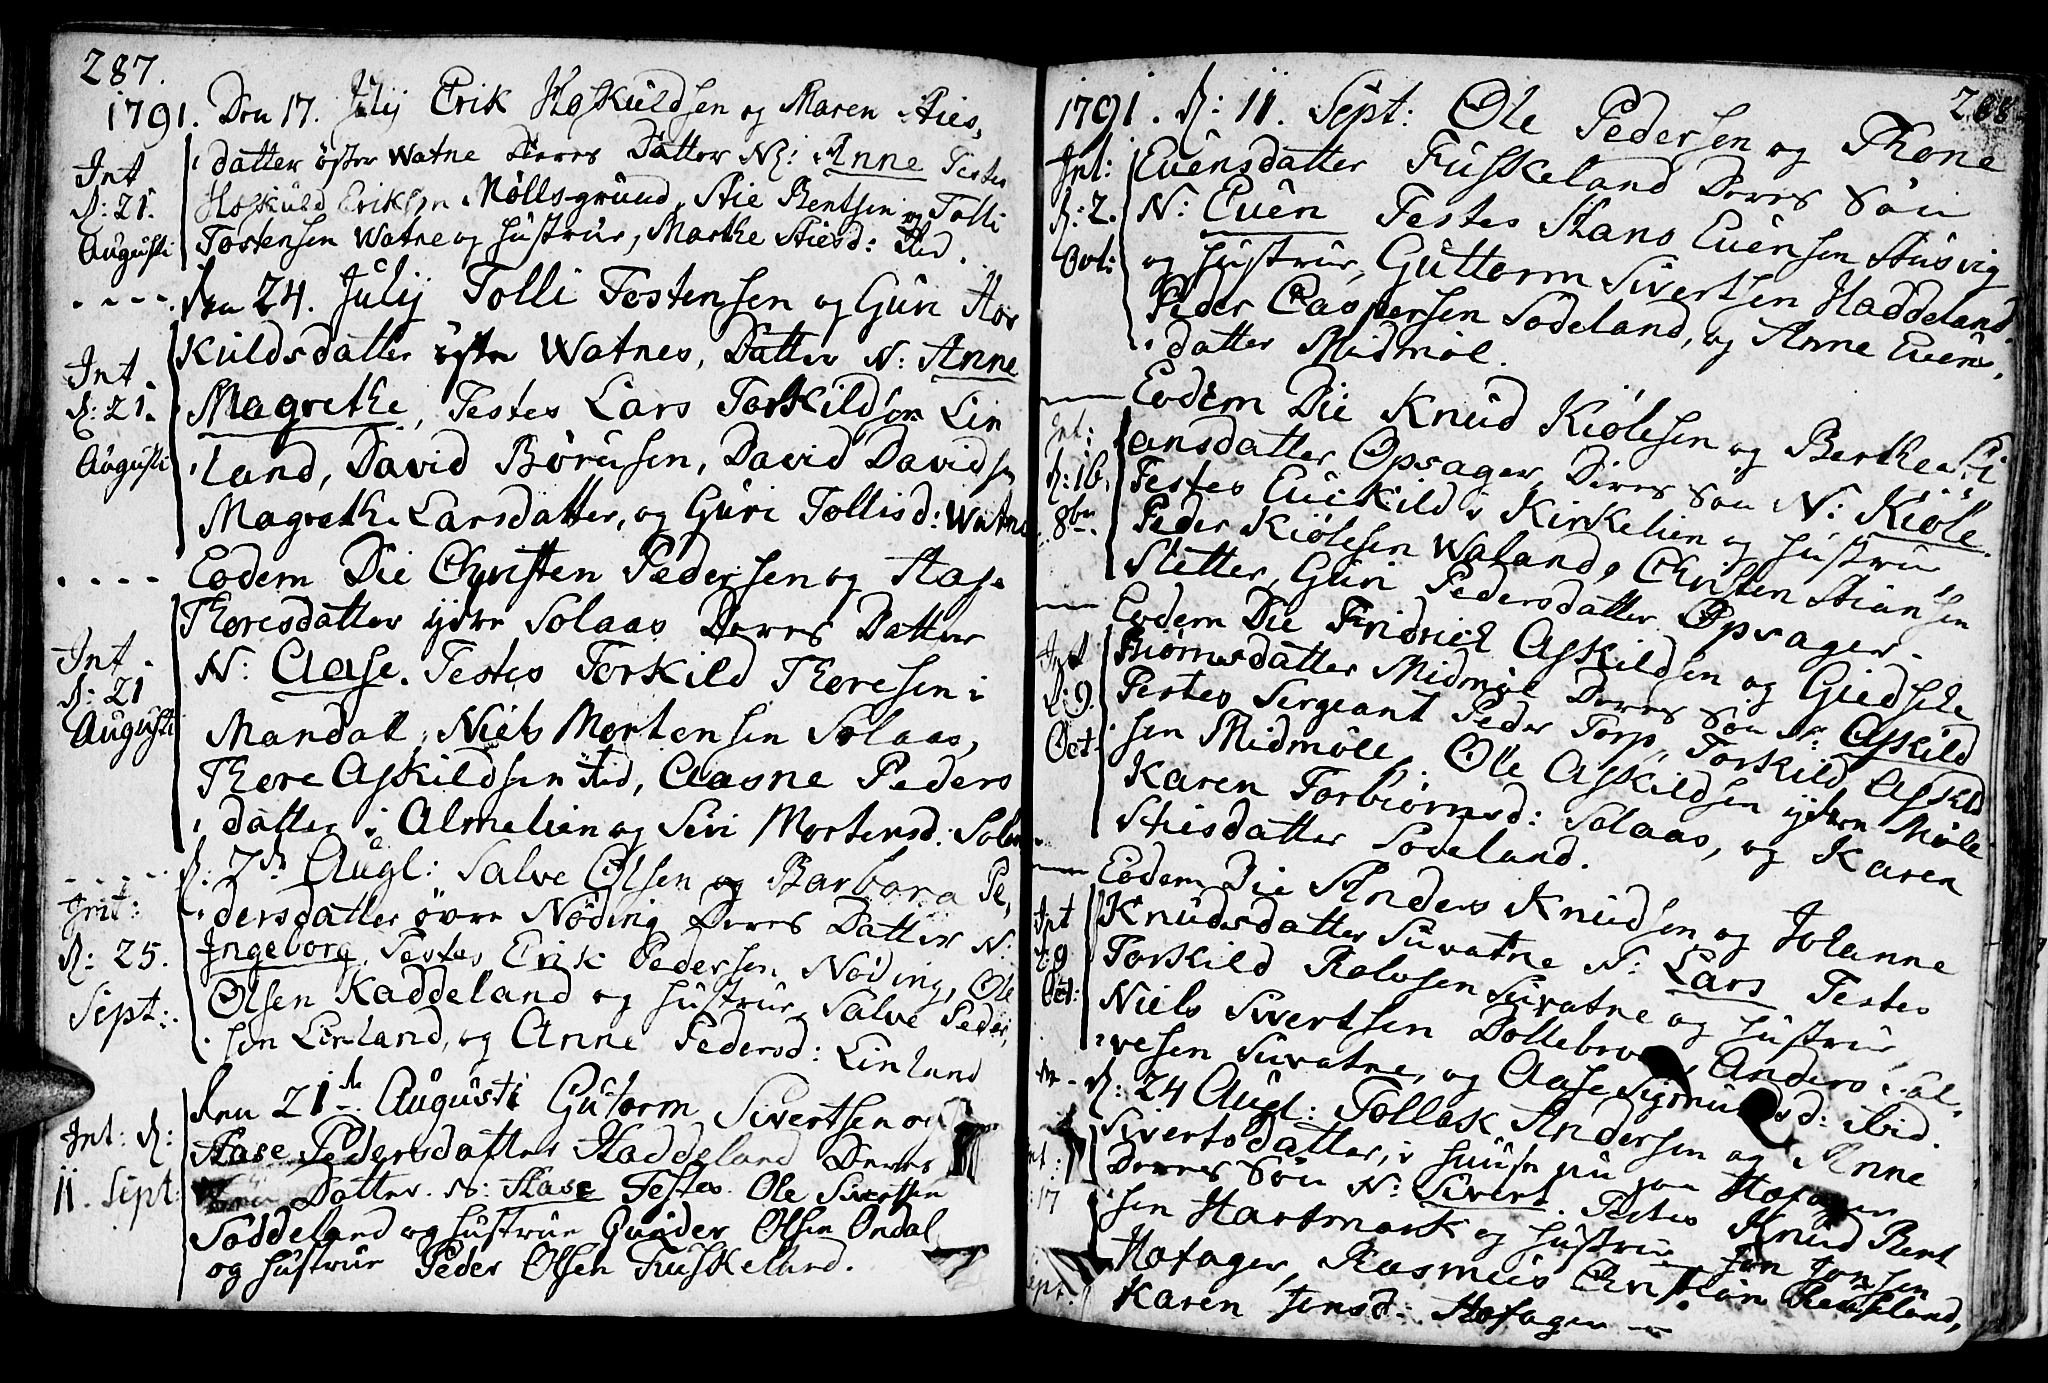 287.
1791. Den 17. Julij Erik Hoskuldsen og Maren Sties,
datter öster Watne Deres Datter N: Anne Testes
Int
d: 21.
Augusti
Hoskuld Eriksen Möllsgrund, Stie Bentsen og Tolli
Tostensen Watne og Hustrue, Marthe Stiesd: Ibd.
Den 24. Julij Tolli Tostensen og Guri Hos
kuldsdatter öster Watnes, Datter N: Anne
Int
d: 21.
Augusti
Magrethe, Testes Lars Torkildsen Lin
land, David Börusen, David Davidsen
Magrethe Larsdatter, og Guri Tollisd: Watne
Eodem Die Christen Pedersen og Aase
Thoresdatter ydre Solaas Deres Datter
Int
d: 21
Augusti
N: Aase. Testes Torkild Thoresen i
Mandal, Niels Mortensen Solaas,
Thore Askildsen ibd, Aasne Peders
datter i Almelien og Siri Mortensd: Solaas
d. 7de Augl: Salve Olsen og Barbara Pe,
dersdatter övre Nöding Deres Datter N:
Int:
d: 25.
Sept:
Ingeborg, Testes Erik Pedersen Nöding, Ole
Olsen Kaddeland og Hustrue, Salve Peder,
sen Linland, og Anne Pedersd: Linland
Den 21de Augusti Gutorm Sivertsen og
Aase Pedersdatter Haddeland Deres
Int: d:
11. Sept:
Datter N: Aase Testes Ole Sivertsen
Soddeland og Hustrue Gunder Olsen Ondal
og Hustrue Peder Olsen Fuskeland.
288
1791. d: 11. Sept: Ole Pedersen og Thone
Int:
d: 2.
Oct:
Evensdatter Fuskeland Deres Sön
N: Even Testes Hans Evensen Stusvig
og Hustrue, Guttorm Sivertsen Haddeland,
Peder Caspersen Södeland, og Anne Evens,
datter Midmöl.
Eodem Die Knud Kiölesen og Berthe Sti
Int:
d: 16.
8br.
ansdatter Opsager Deres Sön N: Kiöle.
Testes Euikild i Kirkelien og Hustrue
Peder Kiölesen Waland, Christen Stiansen
Sletter, Guri Pedersdatter Opsager.
Eodem Die Fridrich Askildsen og Giedske
Int
d: 9.
Oct.
Biörnsdatter Midmöl Deres Sön N: Askild
Testes Sergeant Peder Torp, Torkild Askild
sen Midmöle, Ole Askildsen ydere Möle
Karen Torbiörnsd: Solaas, og Karen
Stiesdatter Södeland.
Eodem Die Anders Knudsen og Johanne
Int
d: 9
Oct:
Knudsdatter Suvatne N: Lars Testes
Torkild Rolvsen Suvatne og Hustrue,
Niels Sivertsen Dollebrod, Anders Sal,
vesen Suvatne, og Aase Sigmundsd: Ibid.
d: 24 Augl: Tollak Andersen og Anne
Sivertsdatter, i Huuse nu paa Hofager
Int:
d: 17
Sept.
Deres Sön N: Sivert. Testes Knud Bent
sen Hartmark og Hustrue Jon Jonsen
Hofager, Rasmus Christian
Karen Jensd: Hofager